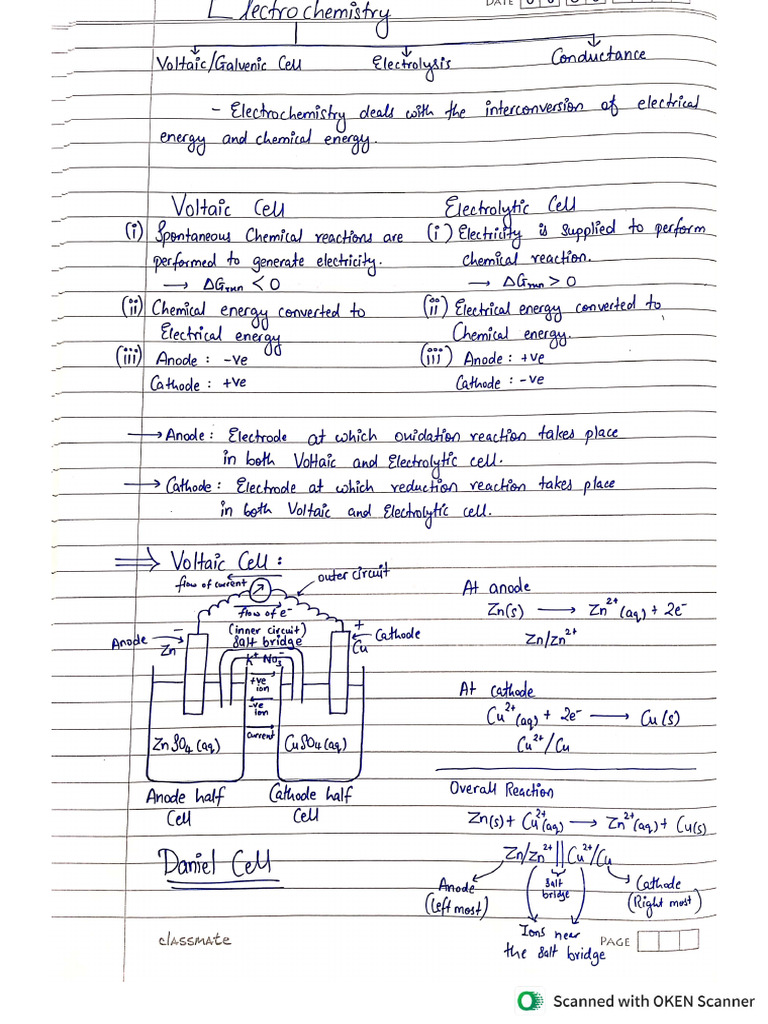 Electrochemistry
DATE
Voltaic/Galvenic Cell Electrolysis Conductance
- Electrochemistry deals with the interconversion of electrical
energy and chemical energy.
Voltaic Cell
(i) Spontaneous Chemical reactions are
performed to generate electricity.
→ ΔGrxn < 0
(ii) Chemical energy converted to
Electrical energy
(iii) Anode : -ve
Cathode : +ve
Electrolytic Cell
(i) Electricity is supplied to perform
chemical reaction.
→ ΔGrxn > 0
(ii) Electrical energy converted to
Chemical energy.
(iii) Anode : +ve
Cathode : -ve
→ Anode : Electrode at which oxidation reaction takes place
in both Voltaic and Electrolytic cell.
→ Cathode : Electrode at which reduction reaction takes place
in both Voltaic and Electrolytic cell.
⇒ Voltaic Cell :
flow of current
outer circuit
flow of e⁻
(inner circuit)
Salt bridge
Anode → - Zn
+ Cu ← Cathode
K⁺ NO₃⁻
+ve
ion
-ve
ion
current
ZnSO₄ (aq)
CuSO₄ (aq)
Anode half
Cell
Cathode half
Cell
Daniel Cell
At anode
Zn(s) → Zn²⁺(aq) + 2e⁻
Zn/Zn²⁺
At cathode
Cu²⁺(aq) + 2e⁻ → Cu(s)
Cu²⁺/Cu
Overall Reaction
Zn(s) + Cu²⁺(aq) → Zn²⁺(aq) + Cu(s)
Zn/Zn²⁺ || Cu²⁺/Cu
Anode
(Left most)
Salt
bridge
Cathode
(Right most)
Ions near
the salt bridge
classmate
PAGE
Scanned with OKEN Scanner